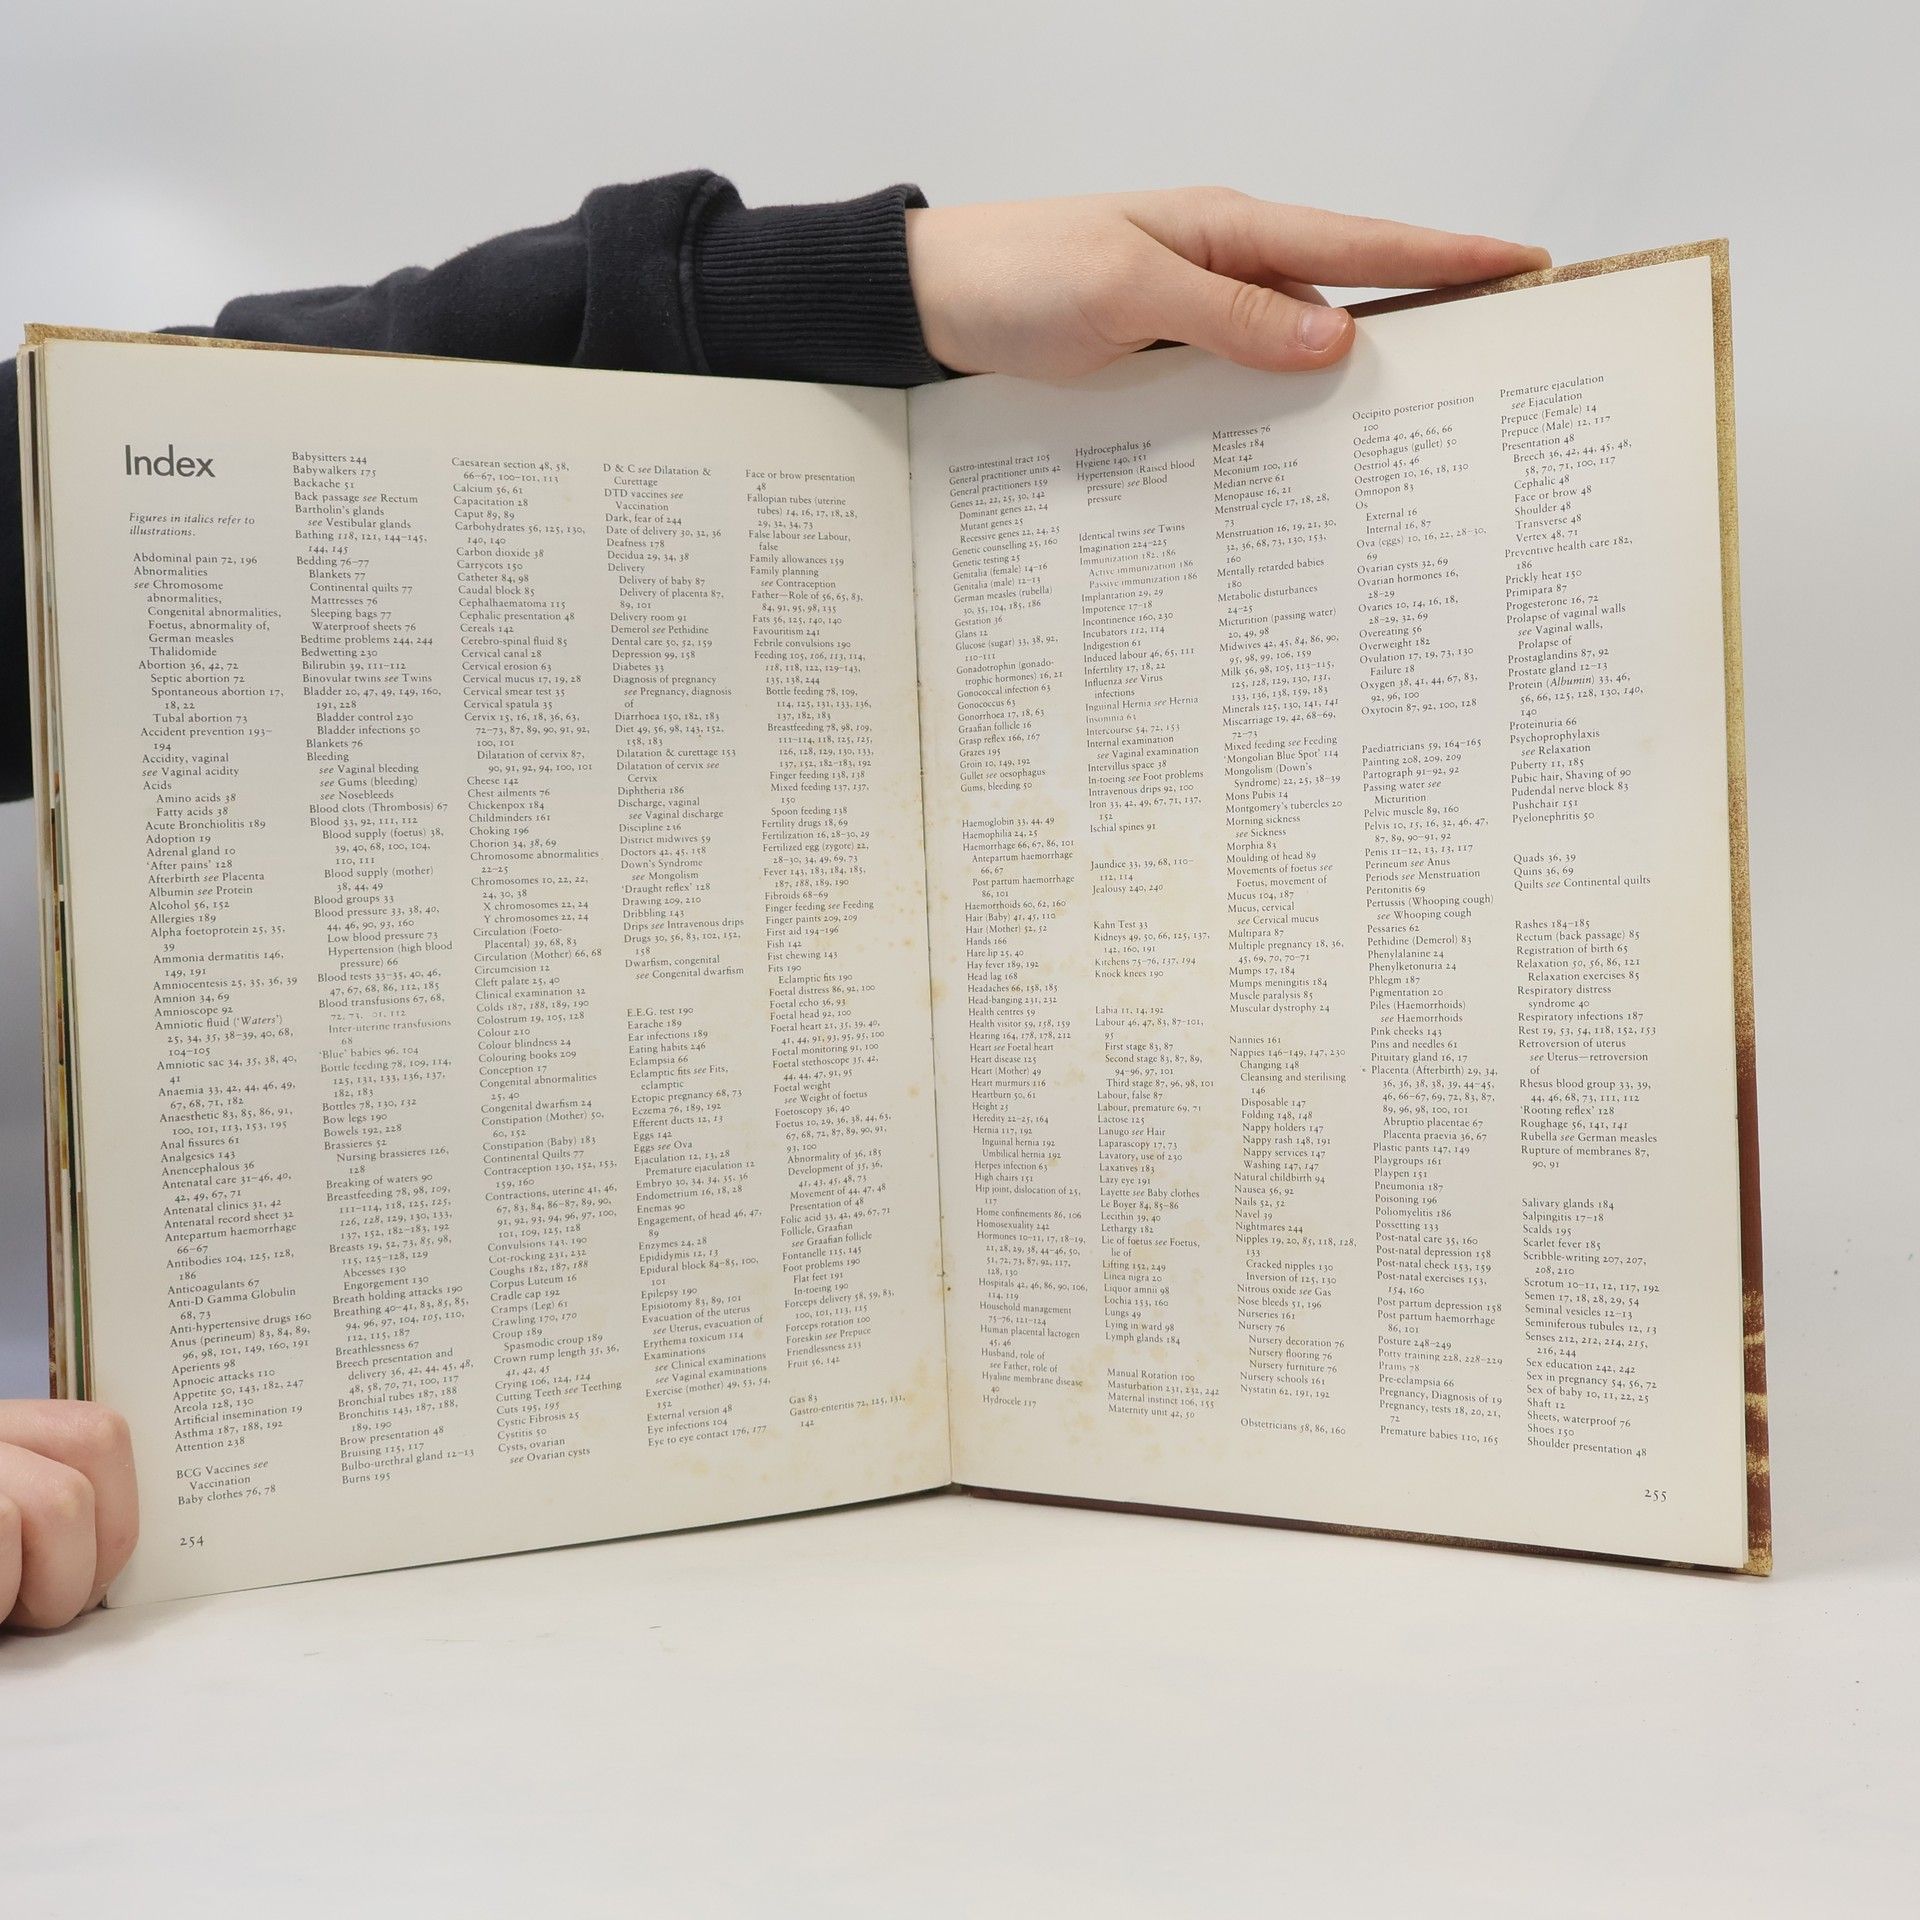 Index
Figures in italics refer to
illustrations.
Abdominal pain 72, 196
Abnormalities
see Chromosome
abnormalities,
Congenital abnormalities,
Foetus, abnormality of,
German measles
Thalidomide
Abortion 36, 42, 72
Septic abortion 72
Spontaneous abortion 17,
18, 22
Tubal abortion 73
Accident prevention 193–
194
Accidity, vaginal
see Vaginal acidity
Acids
Amino acids 38
Fatty acids 38
Acute Bronchiolitis 189
Adoption 19
Adrenal gland 10
'After pains' 128
Afterbirth see Placenta
Albumin see Protein
Alcohol 56, 152
Allergies 189
Alpha foetoprotein 25, 35,
39
Ammonia dermatitis 146,
149, 191
Amniocentesis 25, 35, 36, 39
Amnion 34, 69
Amnioscope 92
Amniotic fluid ('Waters')
25, 34, 35, 38–39, 40, 68,
104–105
Amniotic sac 34, 35, 38, 40,
41
Anaemia 33, 42, 44, 46, 49,
67, 68, 71, 182
Anaesthetic 83, 85, 86, 91,
100, 101, 113, 153, 195
Anal fissures 61
Analgesics 143
Anencephalous 36
Antenatal care 31–46, 40,
42, 49, 67, 71
Antenatal clinics 31, 42
Antenatal record sheet 32
Antepartum haemorrhage
66–67
Antibodies 104, 125, 128,
186
Anticoagulants 67
Anti-D Gamma Globulin
68, 73
Anti-hypertensive drugs 160
Anus (perineum) 83, 84, 89,
96, 98, 101, 149, 160, 191
Aperients 98
Apnoeic attacks 110
Appetite 50, 143, 182, 247
Areola 128, 130
Artificial insemination 19
Asthma 187, 188, 192
Attention 238
BCG Vaccines see
Vaccination
Baby clothes 76, 78
254
Babysitters 244
Babywalkers 175
Backache 51
Back passage see Rectum
Bartholin's glands
see Vestibular glands
Bathing 118, 121, 144–145,
144, 145
Bedding 76–77
Blankets 77
Continental quilts 77
Mattresses 76
Sleeping bags 77
Waterproof sheets 76
Bedtime problems 244, 244
Bedwetting 230
Bilirubin 39, 111–112
Binovular twins see Twins
Bladder 20, 47, 49, 149, 160,
191, 228
Bladder control 230
Bladder infections 50
Blankets 76
Bleeding
see Vaginal bleeding
see Gums (bleeding)
see Nosebleeds
Blood clots (Thrombosis) 67
Blood 33, 92, 111, 112
Blood supply (foetus) 38,
39, 40, 68, 100, 104,
110, 111
Blood supply (mother)
38, 44, 49
Blood groups 33
Blood pressure 33, 38, 40,
44, 46, 90, 93, 160
Low blood pressure 73
Hypertension (high blood
pressure) 66
Blood tests 33–35, 40, 46,
47, 67, 68, 86, 112, 185
Blood transfusions 67, 68,
72, 73, 112
Inter-uterine transfusions
68
'Blue' babies 96, 104
Bottle feeding 78, 109, 114,
125, 131, 133, 136, 137,
182, 183
Bottles 78, 130, 132
Bow legs 190
Bowels 192, 228
Brassieres 52
Nursing brassieres 126,
128
Breaking of waters 90
Breastfeeding 78, 98, 109,
111–114, 118, 125, 125,
126, 128, 129, 130, 133,
137, 152, 182–183, 192
Breasts 19, 52, 73, 85, 98,
115, 125–128, 129
Abcesses 130
Engorgement 130
Breath holding attacks 190
Breathing 40–41, 83, 85, 85,
94, 96, 97, 104, 105, 110,
112, 115, 187
Breathlessness 67
Breech presentation and
delivery 36, 42, 44, 45, 48,
48, 58, 70, 71, 100, 117
Bronchial tubes 187, 188
Bronchitis 143, 187, 188,
189, 190
Brow presentation 48
Bruising 115, 117
Bulbo-urethral gland 12–13
Burns 195
Caesarean section 48, 58,
66–67, 100–101, 113
Calcium 56, 61
Capacitation 28
Caput 89, 89
Carbohydrates 56, 125, 130,
140, 140
Carbon dioxide 38
Carrycots 150
Catheter 84, 98
Caudal block 85
Cephalhaematoma 115
Cephalic presentation 48
Cereals 142
Cerebro-spinal fluid 85
Cervical canal 28
Cervical erosion 63
Cervical mucus 17, 19, 28
Cervical smear test 35
Cervical spatula 35
Cervix 15, 16, 18, 36, 63,
72–73, 87, 89, 90, 91, 92,
100, 101
Dilatation of cervix 87,
90, 91, 92, 94, 100, 101
Cheese 142
Chest ailments 76
Chickenpox 184
Childminders 161
Choking 196
Chorion 34, 38, 69
Chromosome abnormalities
22–25
Chromosomes 10, 22, 22,
24, 30, 38
X chromosomes 22, 24
Y chromosomes 22, 24
Circulation (Foeto-
Placental) 39, 68, 83
Circulation (Mother) 66, 68
Circumcision 12
Cleft palate 25, 40
Clinical examination 32
Colds 187, 188, 189, 190
Colostrum 19, 105, 128
Colour 210
Colour blindness 24
Colouring books 209
Conception 17
Congenital abnormalities
25, 40
Congenital dwarfism 24
Constipation (Mother) 50,
60, 152
Constipation (Baby) 183
Continental Quilts 77
Contraception 130, 152, 153,
159, 160
Contractions, uterine 41, 46,
67, 83, 84, 86–87, 89, 90,
91, 92, 93, 94, 96, 97, 100,
101, 109, 125, 128
Convulsions 143, 190
Cot-rocking 231, 232
Coughs 182, 187, 188
Corpus Luteum 16
Cradle cap 192
Cramps (Leg) 61
Crawling 170, 170
Croup 189
Spasmodic croup 189
Crown rump length 35, 36,
41, 42, 45
Crying 106, 124, 124
Cutting Teeth see Teething
Cuts 195, 195
Cystic Fibrosis 25
Cystitis 50
Cysts, ovarian
see Ovarian cysts
D & C see Dilatation &
Curettage
DTD vaccines see
Vaccination
Dark, fear of 244
Date of delivery 30, 32, 36
Deafness 178
Decidua 29, 34, 38
Delivery
Delivery of baby 87
Delivery of placenta 87,
89, 101
Delivery room 91
Demerol see Pethidine
Dental care 50, 52, 159
Depression 99, 158
Diabetes 33
Diagnosis of pregnancy
see Pregnancy, diagnosis
of
Diarrhoea 150, 182, 183
Diet 49, 56, 98, 143, 152,
158, 183
Dilatation & curettage 153
Dilatation of cervix see
Cervix
Diphtheria 186
Discharge, vaginal
see Vaginal discharge
Discipline 236
District midwives 59
Doctors 42, 45, 158
Down's Syndrome
see Mongolism
'Draught reflex' 128
Drawing 209, 210
Dribbling 143
Drips see Intravenous drips
Drugs 30, 56, 83, 102, 152,
158
Dwarfism, congenital
see Congenital dwarfism
E.E.G. test 190
Earache 189
Ear infections 189
Eating habits 246
Eclampsia 66
Eclamptic fits see Fits,
eclamptic
Ectopic pregnancy 68, 73
Eczema 76, 189, 192
Efferent ducts 12, 13
Eggs 142
Eggs see Ova
Ejaculation 12, 13, 28
Premature ejaculation 12
Embryo 30, 34, 34, 35, 36
Endometrium 16, 18, 28
Enemas 90
Engagement, of head 46, 47,
89
Enzymes 24, 28
Epididymis 12, 13
Epidural block 84–85, 100,
101
Epilepsy 190
Episiotomy 83, 89, 101
Evacuation of the uterus
see Uterus, evacuation of
Erythema toxicum 114
Examinations
see Clinical examinations
see Vaginal examinations
Exercise (mother) 49, 53, 54,
152
External version 48
Eye infections 104
Eye to eye contact 176, 177
Face or brow presentation
48
Fallopian tubes (uterine
tubes) 14, 16, 17, 18, 28,
29, 32, 34, 73
False labour see Labour,
false
Family allowances 159
Family planning
see Contraception
Father—Role of 56, 65, 83,
84, 91, 95, 98, 135
Fats 56, 125, 140, 140
Favouritism 241
Febrile convulsions 190
Feeding 105, 106, 113, 114,
118, 118, 122, 129–143,
135, 138, 244
Bottle feeding 78, 109,
114, 125, 131, 133, 136,
137, 182, 183
Breastfeeding 78, 98, 109,
111–114, 118, 125, 125,
126, 128, 129, 130, 133,
137, 152, 182–183, 192
Finger feeding 138, 138
Mixed feeding 137, 137,
150
Spoon feeding 138
Fertility drugs 18, 69
Fertilization 16, 28–30, 29
Fertilized egg (zygote) 22,
28–30, 34, 49, 69, 73
Fever 143, 183, 184, 185,
187, 188, 189, 190
Fibroids 68–69
Finger feeding see Feeding
Finger paints 209, 209
First aid 194–196
Fish 142
Fist chewing 143
Fits 190
Eclamptic fits 190
Foetal distress 86, 92, 100
Foetal echo 36, 93
Foetal head 92, 100
Foetal heart 21, 35, 39, 40,
41, 44, 91, 93, 95, 95, 100
Foetal monitoring 91, 100
Foetal stethoscope 35, 42,
44, 44, 47, 91, 95
Foetal weight
see Weight of foetus
Foetoscopy 36, 40
Foetus 10, 29, 36, 38, 44, 63,
67, 68, 72, 87, 89, 90, 91,
93, 100
Abnormality of 36, 185
Development of 35, 36,
41, 43, 45, 48, 73
Movement of 44, 47, 48
Presentation of 48
Folic acid 33, 42, 49, 67, 71
Follicle, Graafian
see Graafian follicle
Fontanelle 115, 145
Foot problems 190
Flat feet 191
In-toeing 190
Forceps delivery 58, 59, 83,
100, 101, 113, 115
Forceps rotation 100
Foreskin see Prepuce
Friendlessness 233
Fruit 56, 142
Gas 83
Gastro-enteritis 72, 125, 131,
142
Gastro-intestinal tract 105
General practitioner units 42
General practitioners 159
Genes 22, 22, 25, 30, 142
Dominant genes 22, 24
Mutant genes 25
Recessive genes 22, 24, 25
Genetic counselling 25, 160
Genetic testing 25
Genitalia (female) 14–16
Genitalia (male) 12–13
German measles (rubella)
30, 35, 104, 185, 186
Gestation 36
Glans 12
Glucose (sugar) 33, 38, 92,
110–111
Gonadotrophin (gonado-
trophic hormones) 16, 21
Gonococcal infection 63
Gonococcus 63
Gonorrhoea 17, 18, 63
Graafian follicle 16
Grasp reflex 166, 167
Grazes 195
Groin 10, 149, 192
Gullet see oesophagus
Gums, bleeding 50
Haemoglobin 33, 44, 49
Haemophilia 24, 25
Haemorrhage 66, 67, 86, 101
Antepartum haemorrhage
66, 67
Post partum haemorrhage
86, 101
Haemorrhoids 60, 62, 160
Hair (Baby) 41, 45, 110
Hair (Mother) 52, 52
Hands 166
Hare lip 25, 40
Hay fever 189, 192
Head lag 168
Headaches 66, 158, 185
Head-banging 231, 232
Health centres 59
Health visitor 59, 158, 159
Hearing 164, 178, 178, 212
Heart see Foetal heart
Heart disease 125
Heart (Mother) 49
Heart murmurs 116
Heartburn 50, 61
Height 25
Heredity 22–25, 164
Hernia 117, 192
Inguinal hernia 192
Umbilical hernia 192
Herpes infection 63
High chairs 151
Hip joint, dislocation of 25,
117
Home confinements 86, 106
Homosexuality 242
Hormones 10–11, 17, 18–19,
21, 28, 29, 38, 44–46, 50,
51, 72, 73, 87, 92, 117,
128, 130
Hospitals 42, 46, 86, 90, 106,
114, 119
Household management
75–76, 121–124
Human placental lactogen
45, 46
Husband, role of
see Father, role of
Hyaline membrane disease
40
Hydrocele 117
Hydrocephalus 36
Hygiene 140, 151
Hypertension (Raised blood
pressure) see Blood
pressure
Identical twins see Twins
Imagination 224–225
Immunization 182, 186
Active immunization 186
Passive immunization 186
Implantation 29, 29
Impotence 17–18
Incontinence 160, 230
Incubators 112, 114
Indigestion 61
Induced labour 46, 65, 111
Infertility 17, 18, 22
Influenza see Virus
infections
Inguinal Hernia see Hernia
Insomnia 63
Intercourse 54, 72, 153
Internal examination
see Vaginal examination
Intervillus space 38
In-toeing see Foot problems
Intravenous drips 92, 100
Iron 33, 42, 49, 67, 71, 137,
152
Ischial spines 91
Jaundice 33, 39, 68, 110–
112, 114
Jealousy 240, 240
Kahn Test 33
Kidneys 49, 50, 66, 125, 137,
142, 160, 191
Kitchens 75–76, 137, 194
Knock knees 190
Labia 11, 14, 192
Labour 46, 47, 83, 87–101,
95
First stage 83, 87
Second stage 83, 87, 89,
94–96, 97, 101
Third stage 87, 96, 98, 101
Labour, false 87
Labour, premature 69, 71
Lactose 125
Lanugo see Hair
Laparascopy 17, 73
Lavatory, use of 230
Laxatives 183
Lazy eye 191
Layette see Baby clothes
Le Boyer 84, 85–86
Lecithin 39, 40
Lethargy 182
Lie of foetus see Foetus,
lie of
Lifting 152, 249
Linea nigra 20
Liquor amnii 98
Lochia 153, 160
Lungs 49
Lying in ward 98
Lymph glands 184
Manual Rotation 100
Masturbation 231, 232, 242
Maternal instinct 106, 155
Maternity unit 42, 50
Mattresses 76
Measles 184
Meat 142
Meconium 100, 116
Median nerve 61
Menopause 16, 21
Menstrual cycle 17, 18, 28,
73
Menstruation 16, 19, 21, 30,
32, 36, 68, 73, 130, 153,
160
Mentally retarded babies
180
Metabolic disturbances
24–25
Micturition (passing water)
20, 49, 98
Midwives 42, 45, 84, 86, 90,
95, 98, 99, 106, 159
Milk 56, 98, 105, 113–115,
125, 128, 129, 130, 131,
133, 136, 138, 159, 183
Minerals 125, 130, 141, 141
Miscarriage 19, 42, 68–69,
72–73
Mixed feeding see Feeding
'Mongolian Blue Spot' 114
Mongolism (Down's
Syndrome) 22, 25, 38–39
Mons Pubis 14
Montgomery's tubercles 20
Morning sickness
see Sickness
Morphia 83
Moulding of head 89
Movements of foetus see
Foetus, movement of
Mucus 104, 187
Mucus, cervical
see Cervical mucus
Multipara 87
Multiple pregnancy 18, 36,
45, 69, 70, 70–71
Mumps 17, 184
Mumps meningitis 184
Muscle paralysis 85
Muscular dystrophy 24
Nannies 161
Nappies 146–149, 147, 230
Changing 148
Cleansing and sterilising
146
Disposable 147
Folding 148, 148
Nappy holders 147
Nappy rash 148, 191
Nappy services 147
Washing 147, 147
Natural childbirth 94
Nausea 56, 92
Nails 52, 52
Navel 39
Nightmares 244
Nipples 19, 20, 85, 118, 128,
133
Cracked nipples 130
Inversion of 125, 130
Nitrous oxide see Gas
Nose bleeds 51, 196
Nurseries 161
Nursery 76
Nursery decoration 76
Nursery flooring 76
Nursery furniture 76
Nursery schools 161
Nystatin 62, 191, 192
Obstetricians 58, 86, 160
Occipito posterior position
100
Oedema 40, 46, 66, 66
Oesophagus (gullet) 50
Oestriol 45, 46
Oestrogen 10, 16, 18, 130
Omnopon 83
Os
External 16
Internal 16, 87
Ova (eggs) 10, 16, 22, 28–30,
69
Ovarian cysts 32, 69
Ovarian hormones 16,
28–29
Ovaries 10, 14, 16, 18,
28–29, 32, 69
Overeating 56
Overweight 182
Ovulation 17, 19, 73, 130
Failure 18
Oxygen 38, 41, 44, 67, 83,
92, 96, 100
Oxytocin 87, 92, 100, 128
Paediatricians 59, 164–165
Painting 208, 209, 209
Partograph 91–92, 92
Passing water see
Micturition
Pelvic muscle 89, 160
Pelvis 10, 15, 16, 32, 46, 47,
87, 89, 90–91, 92
Penis 11–12, 13, 13, 117
Perineum see Anus
Periods see Menstruation
Peritonitis 69
Pertussis (Whooping cough)
see Whooping cough
Pessaries 62
Pethidine (Demerol) 83
Phenylalanine 24
Phenylketonuria 24
Phlegm 187
Pigmentation 20
Piles (Haemorrhoids)
see Haemorrhoids
Pink cheeks 143
Pins and needles 61
Pituitary gland 16, 17
Placenta (Afterbirth) 29, 34,
36, 36, 38, 38, 39, 44–45,
46, 66–67, 69, 72, 83, 87,
89, 96, 98, 100, 101
Abruptio placentae 67
Placenta praevia 36, 67
Plastic pants 147, 149
Playgroups 161
Playpen 151
Pneumonia 187
Poisoning 196
Poliomyelitis 186
Possetting 133
Post-natal care 35, 160
Post-natal depression 158
Post-natal check 153, 159
Post-natal exercises 153,
154, 160
Post partum depression 158
Post partum haemorrhage
86, 101
Posture 248–249
Potty training 228, 228–229
Prams 78
Pre-eclampsia 66
Pregnancy, Diagnosis of 19
Pregnancy, tests 18, 20, 21,
72
Premature babies 110, 165
Premature ejaculation
see Ejaculation
Prepuce (Female) 14
Prepuce (Male) 12, 117
Presentation 48
Breech 36, 42, 44, 45, 48,
58, 70, 71, 100, 117
Cephalic 48
Face or brow 48
Shoulder 48
Transverse 48
Vertex 48, 71
Preventive health care 182,
186
Prickly heat 150
Primipara 87
Progesterone 16, 72
Prolapse of vaginal walls
see Vaginal walls,
Prolapse of
Prostaglandins 87, 92
Prostate gland 12–13
Protein (Albumin) 33, 46,
56, 66, 125, 128, 130, 140,
140
Proteinuria 66
Psychoprophylaxis
see Relaxation
Puberty 11, 185
Pubic hair, Shaving of 90
Pudendal nerve block 83
Pushchair 151
Pyelonephritis 50
Quads 36, 39
Quins 36, 69
Quilts see Continental quilts
Rashes 184–185
Rectum (back passage) 85
Registration of birth 65
Relaxation 50, 56, 86, 121
Relaxation exercises 85
Respiratory distress
syndrome 40
Respiratory infections 187
Rest 19, 53, 54, 118, 152, 153
Retroversion of uterus
see Uterus—retroversion
of
Rhesus blood group 33, 39,
44, 46, 68, 73, 111, 112
'Rooting reflex' 128
Roughage 56, 141, 141
Rubella see German measles
Rupture of membranes 87,
90, 91
Salivary glands 184
Salpingitis 17–18
Scalds 195
Scarlet fever 185
Scribble-writing 207, 207,
208, 210
Scrotum 10–11, 12, 117, 192
Semen 17, 18, 28, 29, 54
Seminal vesicles 12–13
Seminiferous tubules 12, 13
Senses 212, 212, 214, 215,
216, 244
Sex education 242, 242
Sex in pregnancy 54, 56, 72
Sex of baby 10, 11, 22, 25
Shaft 12
Sheets, waterproof 76
Shoes 150
Shoulder presentation 48
255